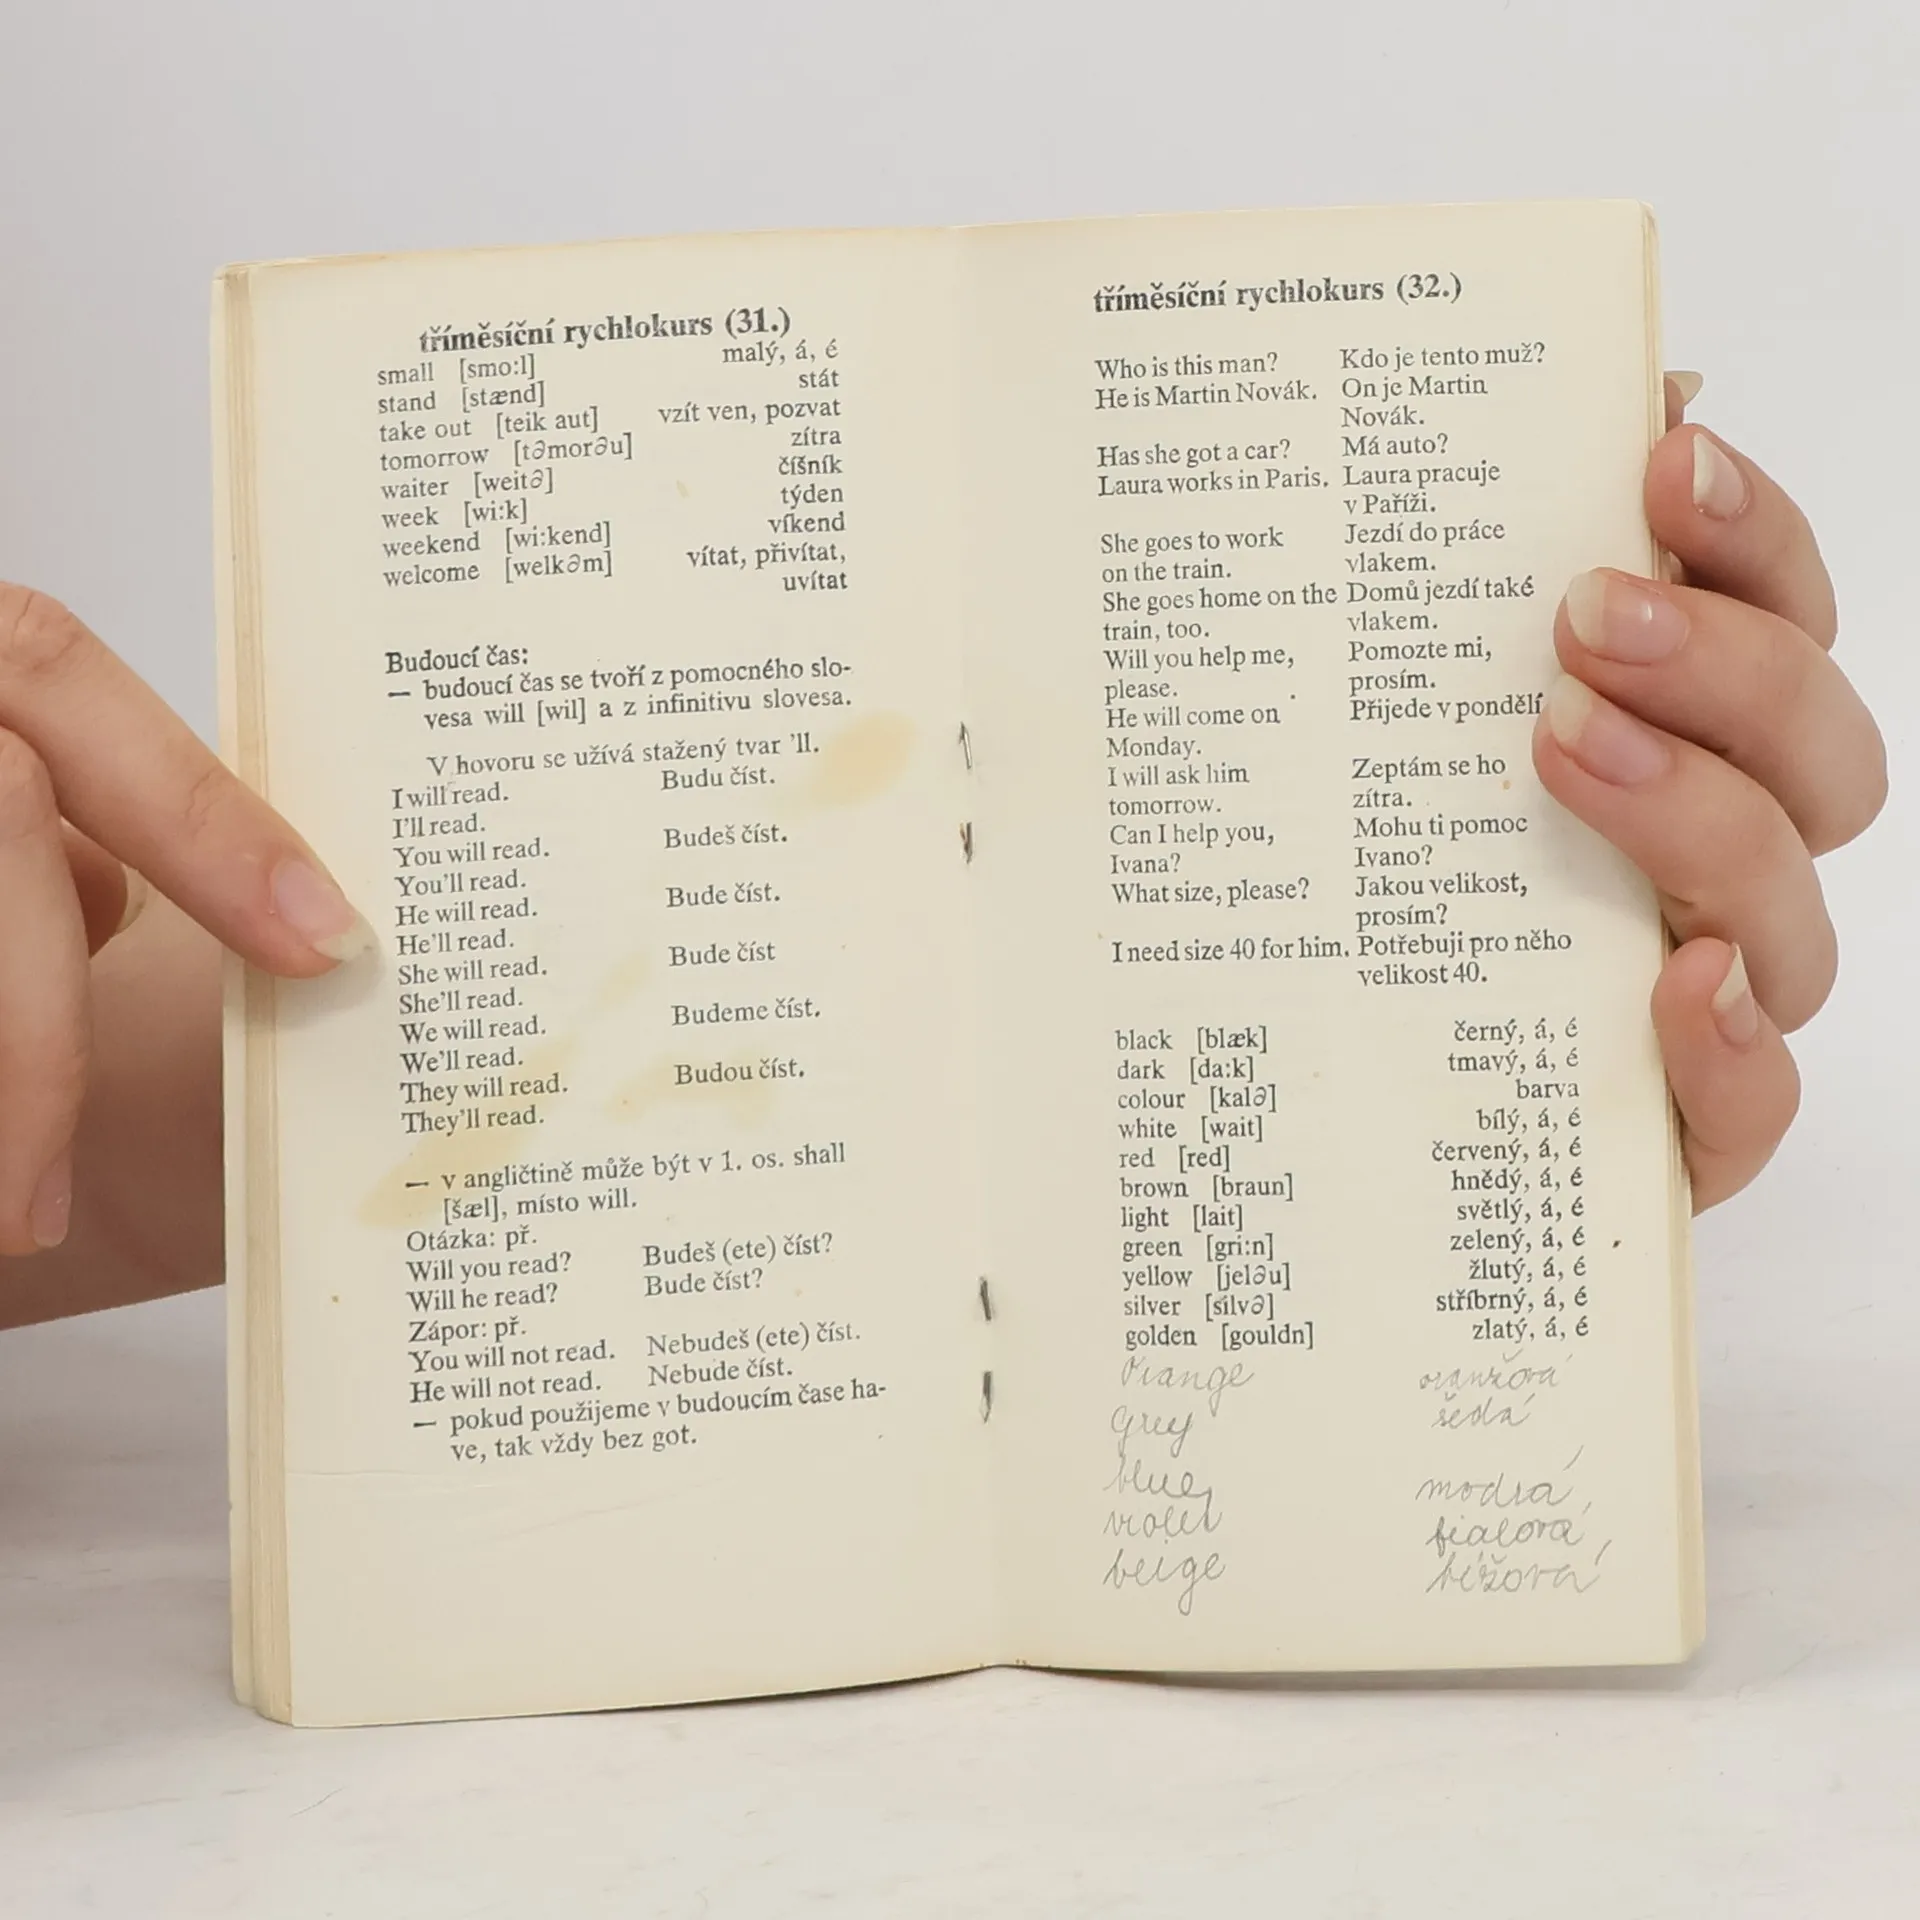 tříměsíční rychlokurs (31.)
small [smo:l] malý, á, é
stand [stænd] stát
take out [teik aut] vzít ven, pozvat
tomorrow [təmorəu] zítra
waiter [weitə] číšník
week [wi:k] týden
weekend [wi:kend] víkend
welcome [welkəm] vítat, přivítat,
uvítat
Budoucí čas:
— budoucí čas se tvoří z pomocného slo-
vesa will [wil] a z infinitivu slovesa.
V hovoru se užívá stažený tvar 'll.
I will read. Budu číst.
I'll read.
You will read. Budeš číst.
You'll read.
He will read. Bude číst.
He'll read.
She will read. Bude číst
She'll read.
We will read. Budeme číst.
We'll read.
They will read. Budou číst.
They'll read.
— v angličtině může být v 1. os. shall
[šæl], místo will.
Otázka: př.
Will you read? Budeš (ete) číst?
Will he read? Bude číst?
Zápor: př.
You will not read. Nebudeš (ete) číst.
He will not read. Nebude číst.
— pokud použijeme v budoucím čase ha-
ve, tak vždy bez got.
tříměsíční rychlokurs (32.)
Who is this man? Kdo je tento muž?
He is Martin Novák. On je Martin
Novák.
Has she got a car? Má auto?
Laura works in Paris. Laura pracuje
v Paříži.
She goes to work Jezdí do práce
on the train. vlakem.
She goes home on the Domů jezdí také
train, too. vlakem.
Will you help me, Pomozte mi,
please. prosím.
He will come on Přijede v pondělí
Monday.
I will ask him Zeptám se ho
tomorrow. zítra.
Can I help you, Mohu ti pomoc
Ivana? Ivano?
What size, please? Jakou velikost,
prosím?
I need size 40 for him. Potřebuji pro něho
velikost 40.
black [blæk] černý, á, é
dark [da:k] tmavý, á, é
colour [kalə] barva
white [wait] bílý, á, é
red [red] červený, á, é
brown [braun] hnědý, á, é
light [lait] světlý, á, é
green [gri:n] zelený, á, é
yellow [jeləu] žlutý, á, é
silver [silvə] stříbrný, á, é
golden [gouldn] zlatý, á, é
Orange oranžová
Grey šedá
blue modrá
violet fialová
beige béžová